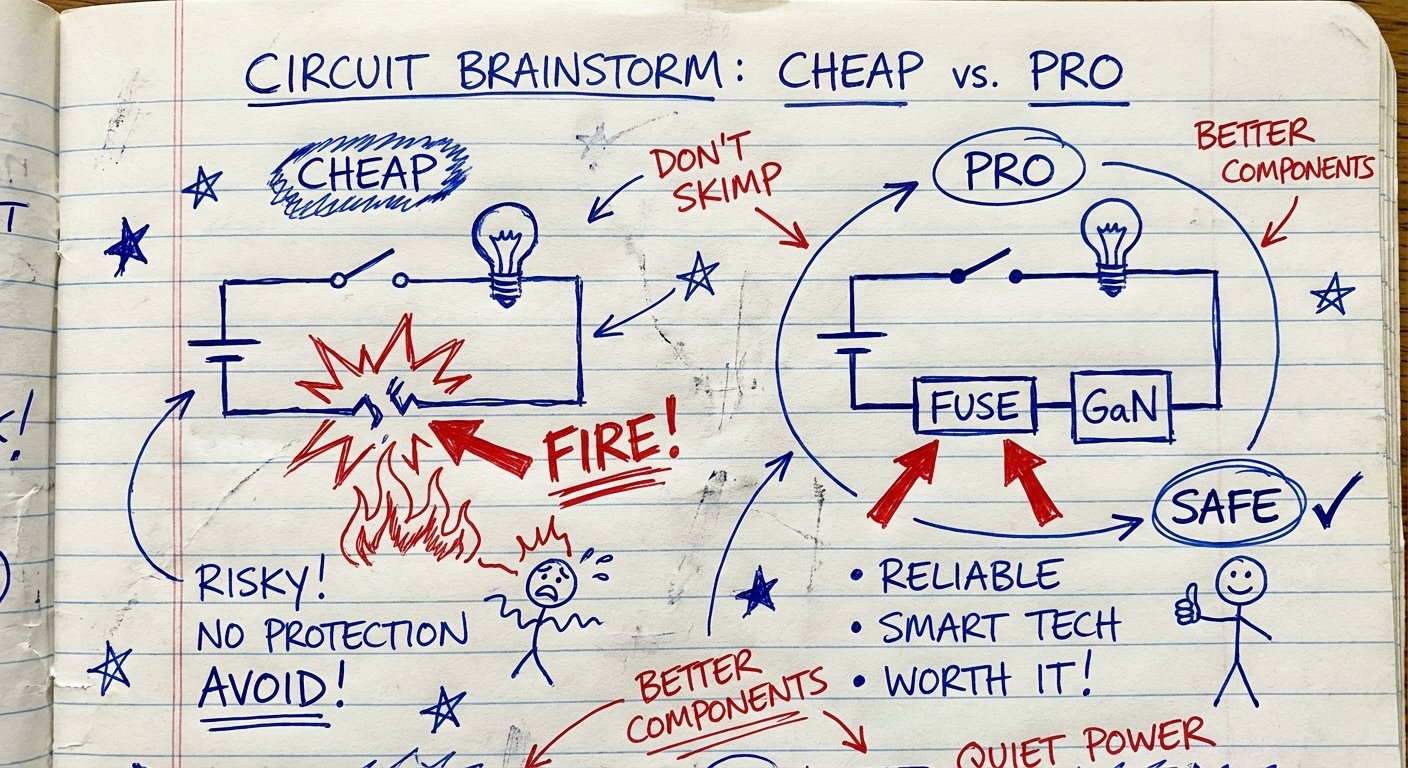 CIRCUIT BRAINSTORM: CHEAP vs. PRO
CHEAP
DON'T
SKIMP
PRO
BETTER
COMPONENTS
FUSE
GaN
FIRE!
SAFE
RISKY!
NO PROTECTION
AVOID!
• RELIABLE
• SMART TECH
• WORTH IT!
BETTER
COMPONENTS
QUIET POWER